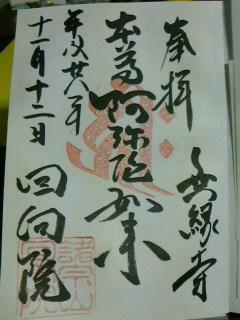 奉拝
無縁寺
本尊阿弥陀如来
平成廿八年
十一月十二日
回向院
諸宗山